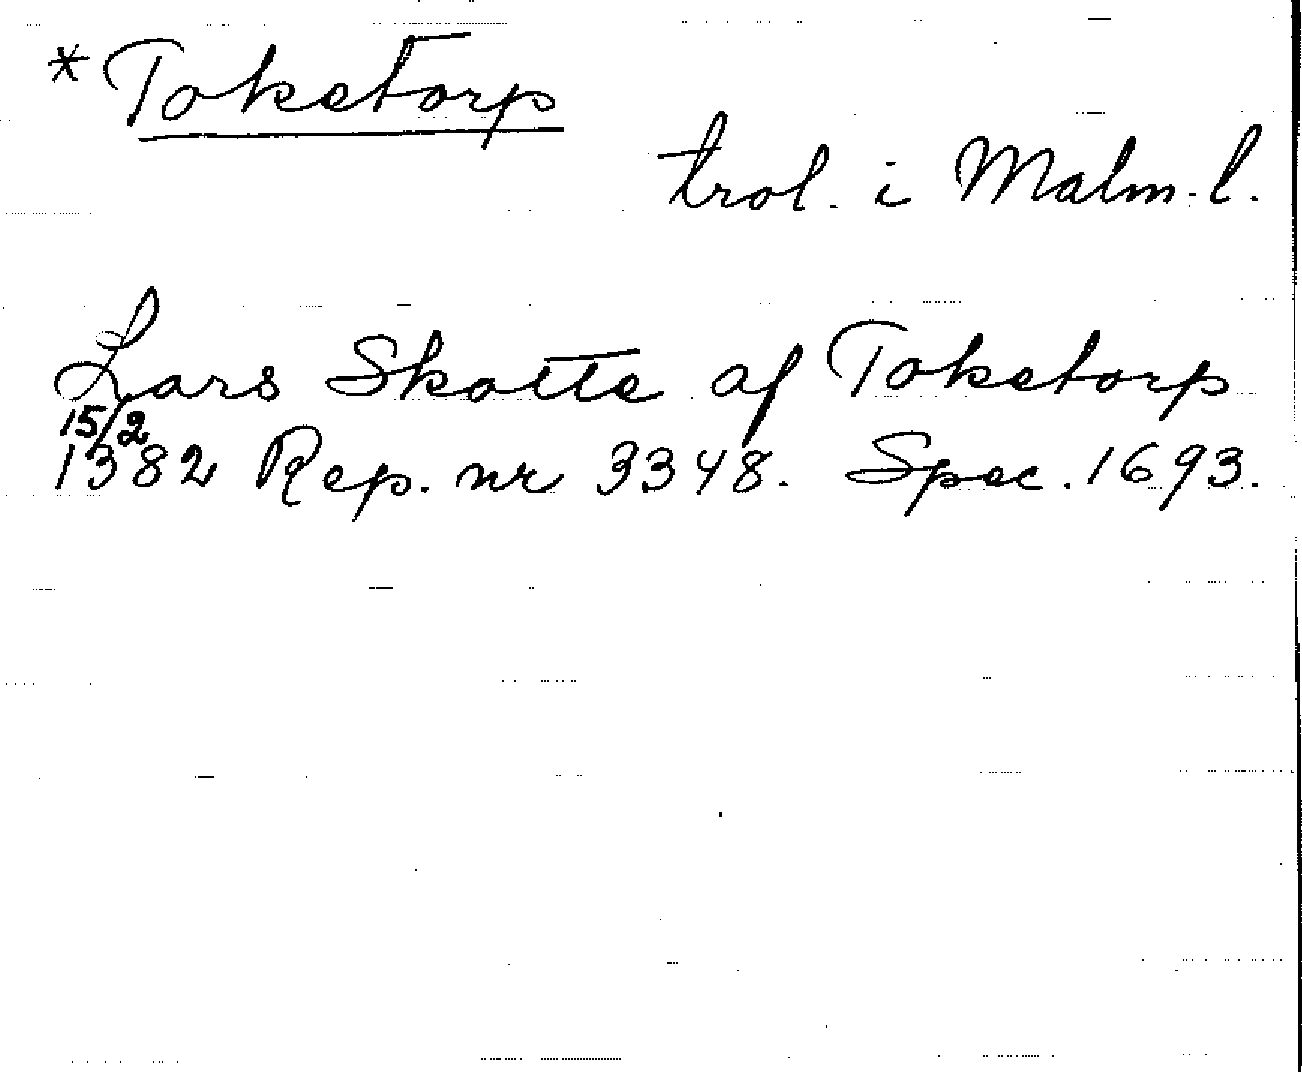 *Toketorp
trol. i Malm. l.
Lars Skotte af Toketorp
15/2
1382 Rep. nr 3348. Spec. 1693.